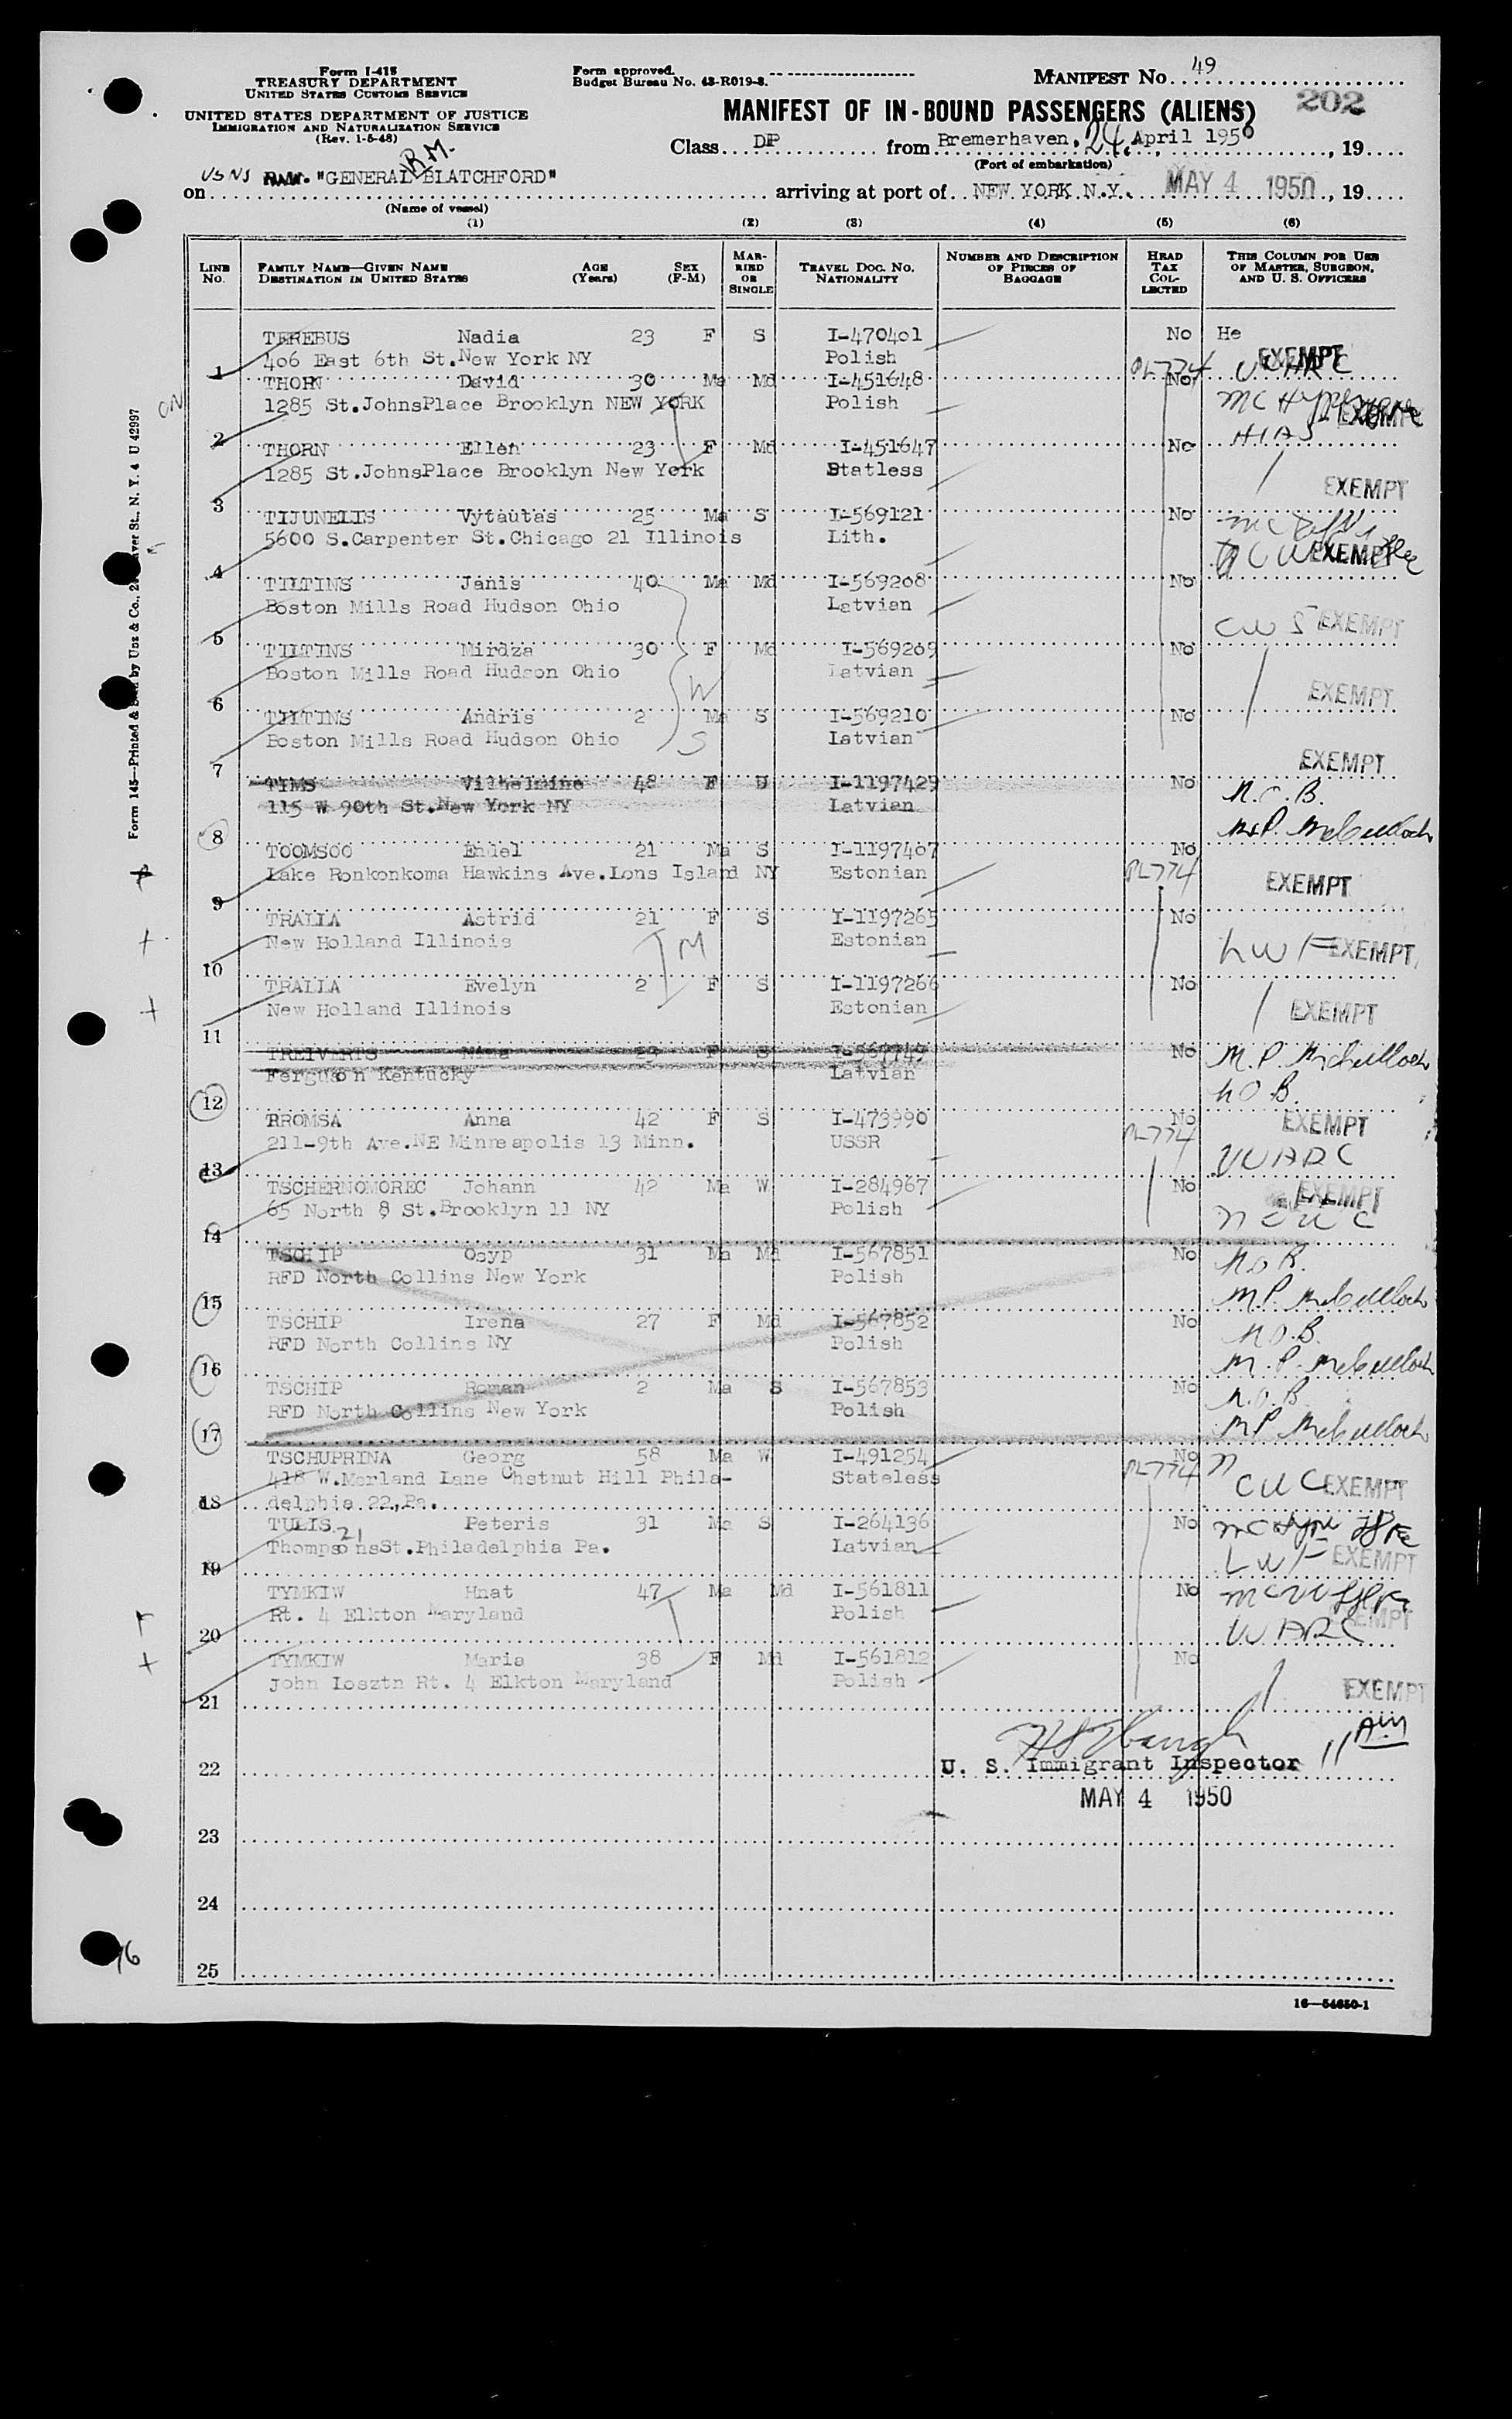 Form I-415
TREASURY DEPARTMENT
UNITED STATES CUSTOMS SERVICE
UNITED STATES DEPARTMENT OF JUSTICE
IMMIGRATION AND NATURALIZATION SERVICE
(Rev. 1-5-48)
Form approved.
Budget Bureau No. 43-R019-3.
MANIFEST No. 49
MANIFEST OF IN-BOUND PASSENGERS (ALIENS)
202
Class DP from Bremerhaven, 24, April 1950, 19
(Port of embarkation)
on USNS R.M. "GENERAL BLATCHFORD" arriving at port of NEW YORK N.Y. MAY 4 1950, 19
(Name of vessel)
(1) (2) (3) (4) (5) (6)
LINE No. FAMILY NAME—GIVEN NAME DESTINATION IN UNITED STATES AGE (Years) SEX (F-M) MARRIED OR SINGLE TRAVEL DOC. NO. NATIONALITY NUMBER AND DESCRIPTION OF PIECES OF BAGGAGE HEAD TAX COLLECTED THIS COLUMN FOR USE OF MASTER, SURGEON, AND U. S. OFFICERS
TEREBUS Nadia 23 F S I-470401 No He
406 East 6th St.New York NY Polish EXEMPT
1 PL774
THORN David 30 Ma Md I-451648 No
1285 St.JohnsPlace Brooklyn NEW YORK Polish EXEMPT
2 HIAS
THORN Ellen 23 F Md I-451647 No
1285 St.JohnsPlace Brooklyn New York Statless EXEMPT
3
TIJUNELIS Vytautas 25 Ma S I-569121 No
5600 S.Carpenter St.Chicago 21 Illinois Lith. EXEMPT
4
TILTINS Janis 40 Ma Md I-569208 No
Boston Mills Road Hudson Ohio Latvian CWS EXEMPT
5
TILTINS Mirdza 30 F Md I-569209 No
Boston Mills Road Hudson Ohio Latvian EXEMPT
6 W
TILTINS Andris 2 Ma S I-569210 No
Boston Mills Road Hudson Ohio Latvian EXEMPT
7 S
TIMS Vilhelmine 48 F D I-1197429 No N.O.B.
115 W 90th St.New York NY Latvian M.P. McCulloch
8
TOOMSOO Endel 21 Ma S I-1197407 No
Lake Ronkonkoma Hawkins Ave.Lons Island NY Estonian PL774 EXEMPT
9
TRALLA Astrid 21 F S I-1197265 No
New Holland Illinois M Estonian LWF EXEMPT
10
TRALLA Evelyn 2 F S I-1197266 No
New Holland Illinois Estonian EXEMPT
11
TREIVERTS F S No M.P. McCulloch
Ferguson Kentucky Latvian N.O.B.
12
RROMSA Anna 42 F S I-473990 No EXEMPT
211-9th Ave.NE Minneapolis 13 Minn. USSR PL774
13
TSCHERNOMOREC Johann 42 Ma W I-284967 No EXEMPT
65 North 8 St.Brooklyn 11 NY Polish
14
TSCHIP Osyp 31 Ma Md I-567851 No N.O.B.
RFD North Collins New York Polish M.P. McCulloch
15
TSCHIP Irena 27 F Md I-567852 No N.O.B.
RFD North Collins NY Polish M.P. McCulloch
16
TSCHIP Roman 2 Ma S I-567853 No N.O.B.
RFD North Collins New York Polish M.P. McCulloch
17
TSCHUPRINA Georg 58 Ma W I-491254 No
418 W.Merland Lane Chstnut Hill Phila- Stateless PL774 EXEMPT
18 delphia 22,Pa.
TULIS 21 Peteris 31 Ma S I-264136 No
ThompsonsSt.Philadelphia Pa. Latvian LWF EXEMPT
19
TYMKIW Hnat 47 Ma Md I-561811 No
Rt. 4 Elkton Maryland Polish EXEMPT
20
TYMKIW Maria 38 F Md I-561812 No
John Iosztn Rt. 4 Elkton Maryland Polish EXEMPT
21
22 U. S. Immigrant Inspector 11 AM
MAY 4 1950
23
24
25
16—54650-1